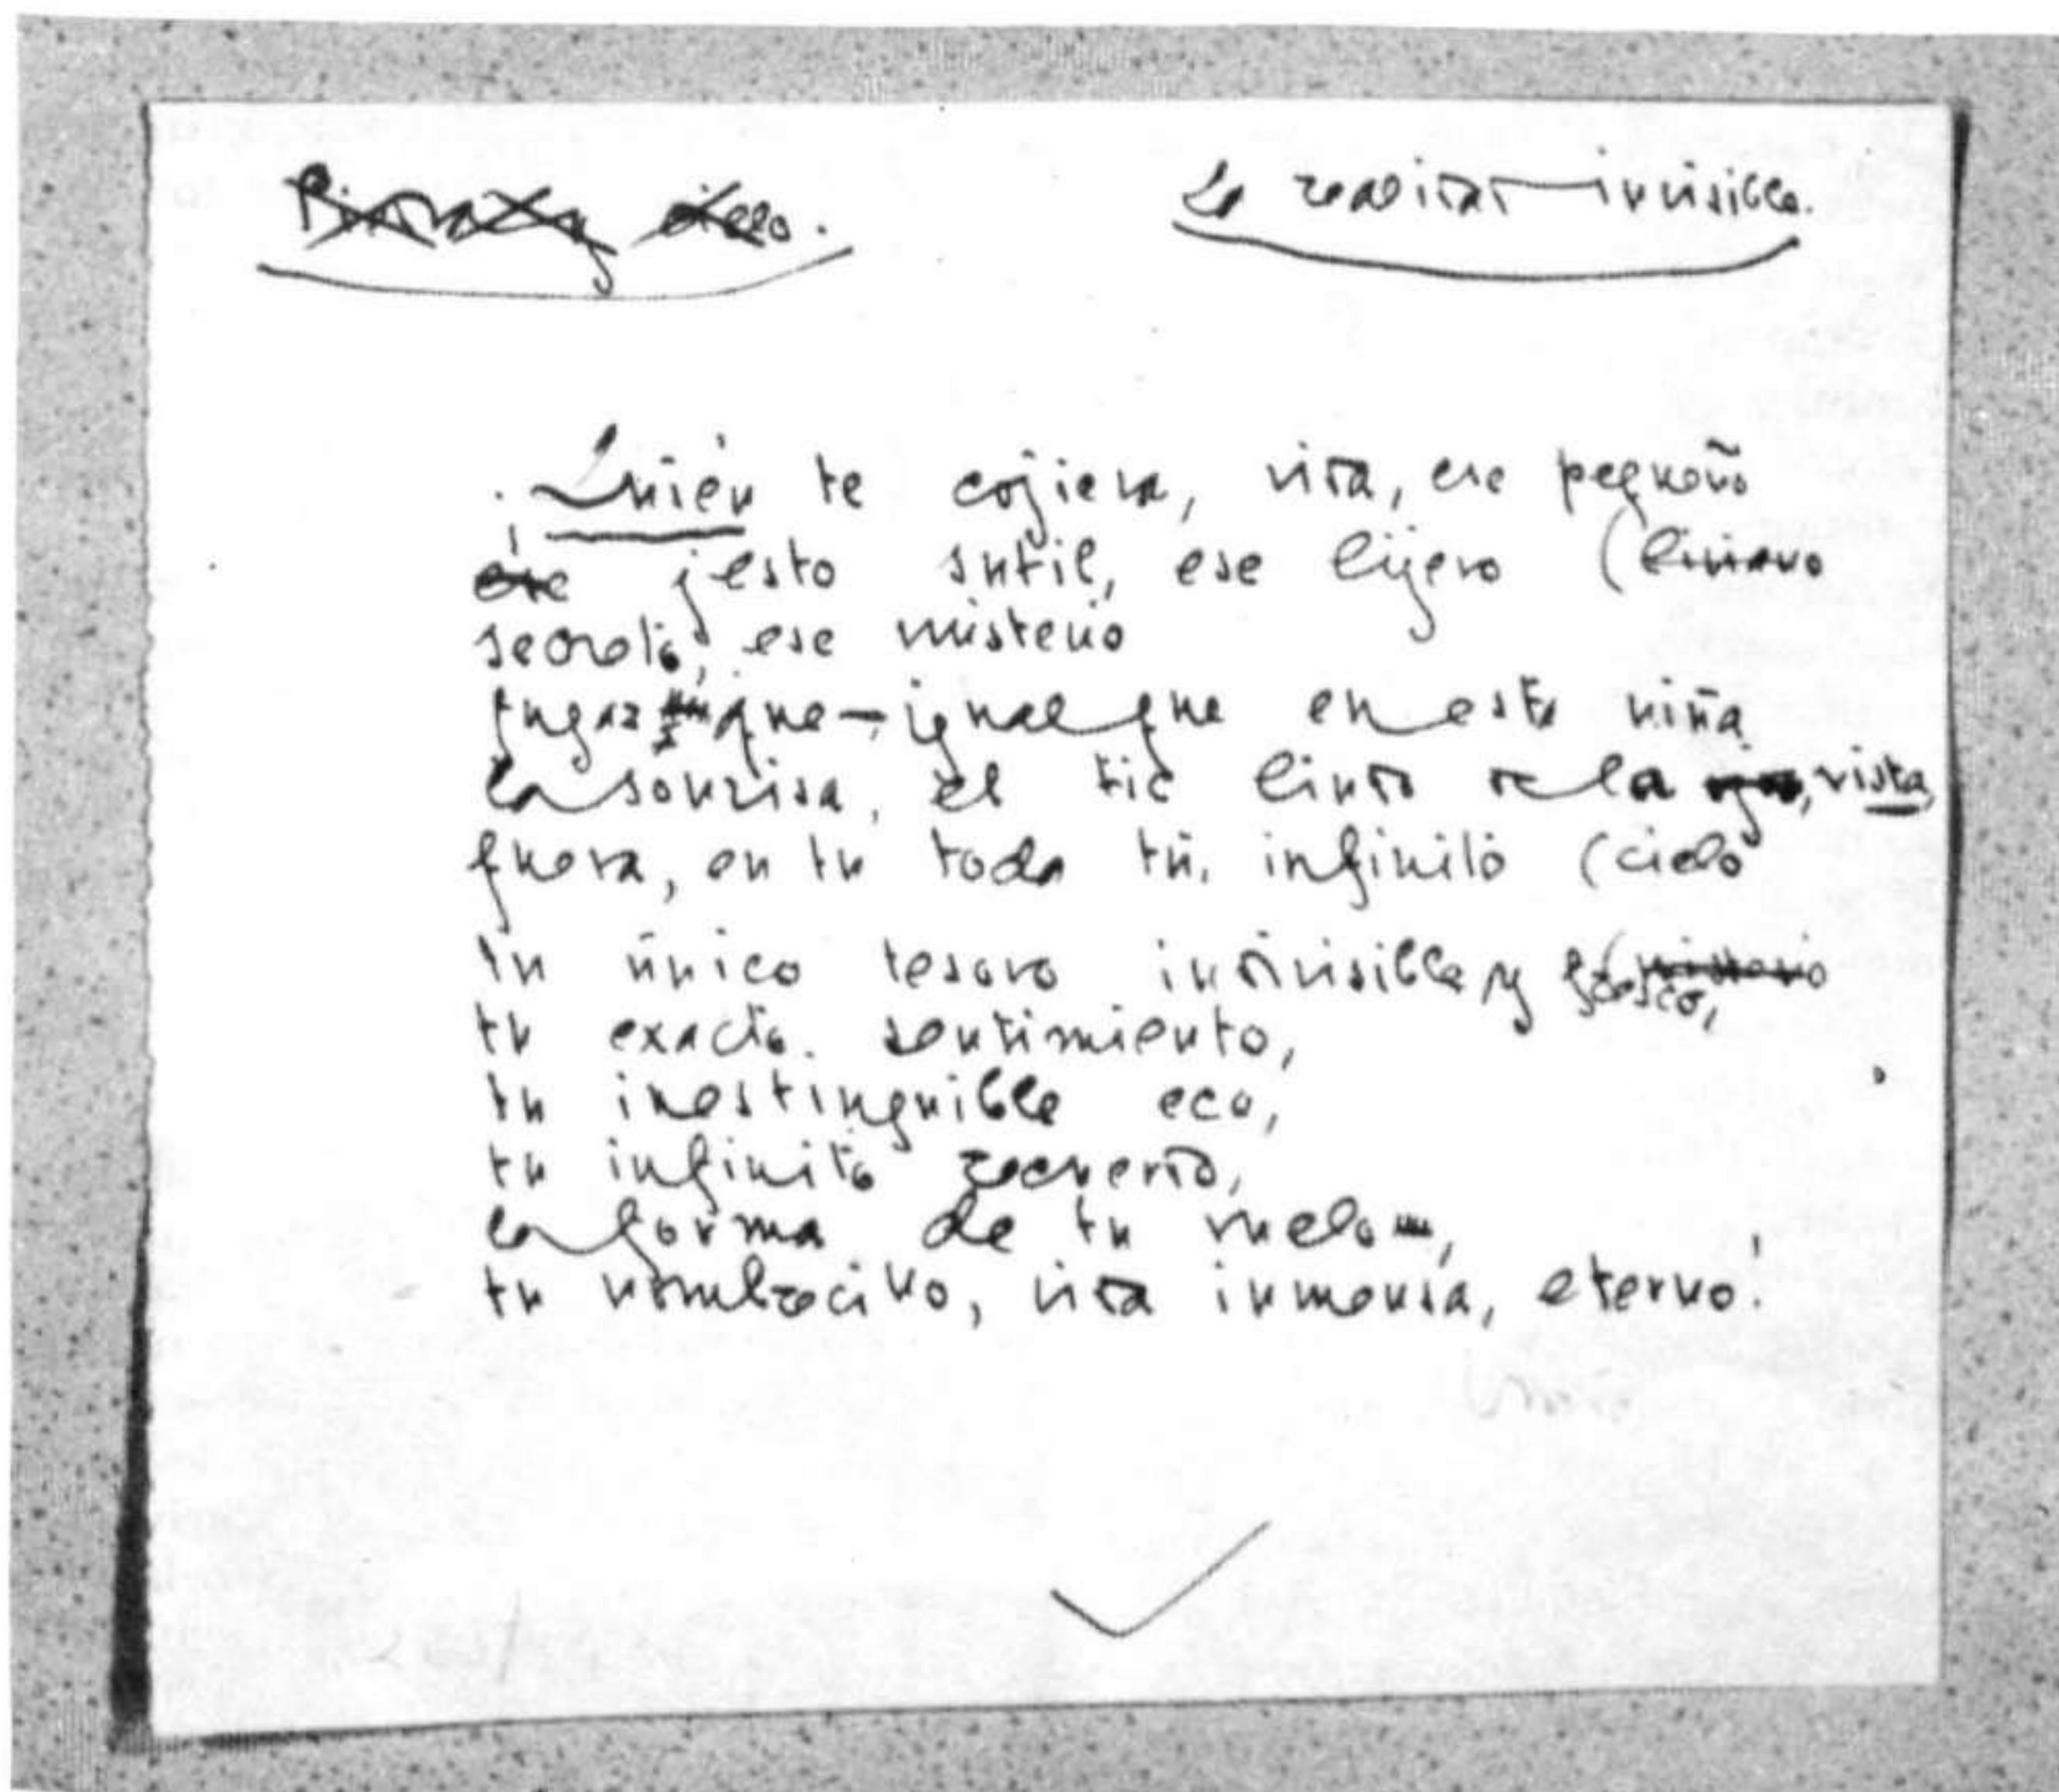 Piedra y cielo. La realidad invisible.
¡Quién te cojiera, vida, ese pequeño
ese jesto sutil, ese lijero (liviano
secreto, ese misterio
fugaz que – igual que en esta niña
la sonrisa, el tic lindo de la vista,
fuera, en tu toda tú, infinito (cielo
tu único tesoro indivisible y fresco, (misterio
tu exacto sentimiento,
tu inestinguible eco,
tu infinito recuerdo,
la forma de tu vuelo,
tu nombrecito, vida inmensa, eterno!